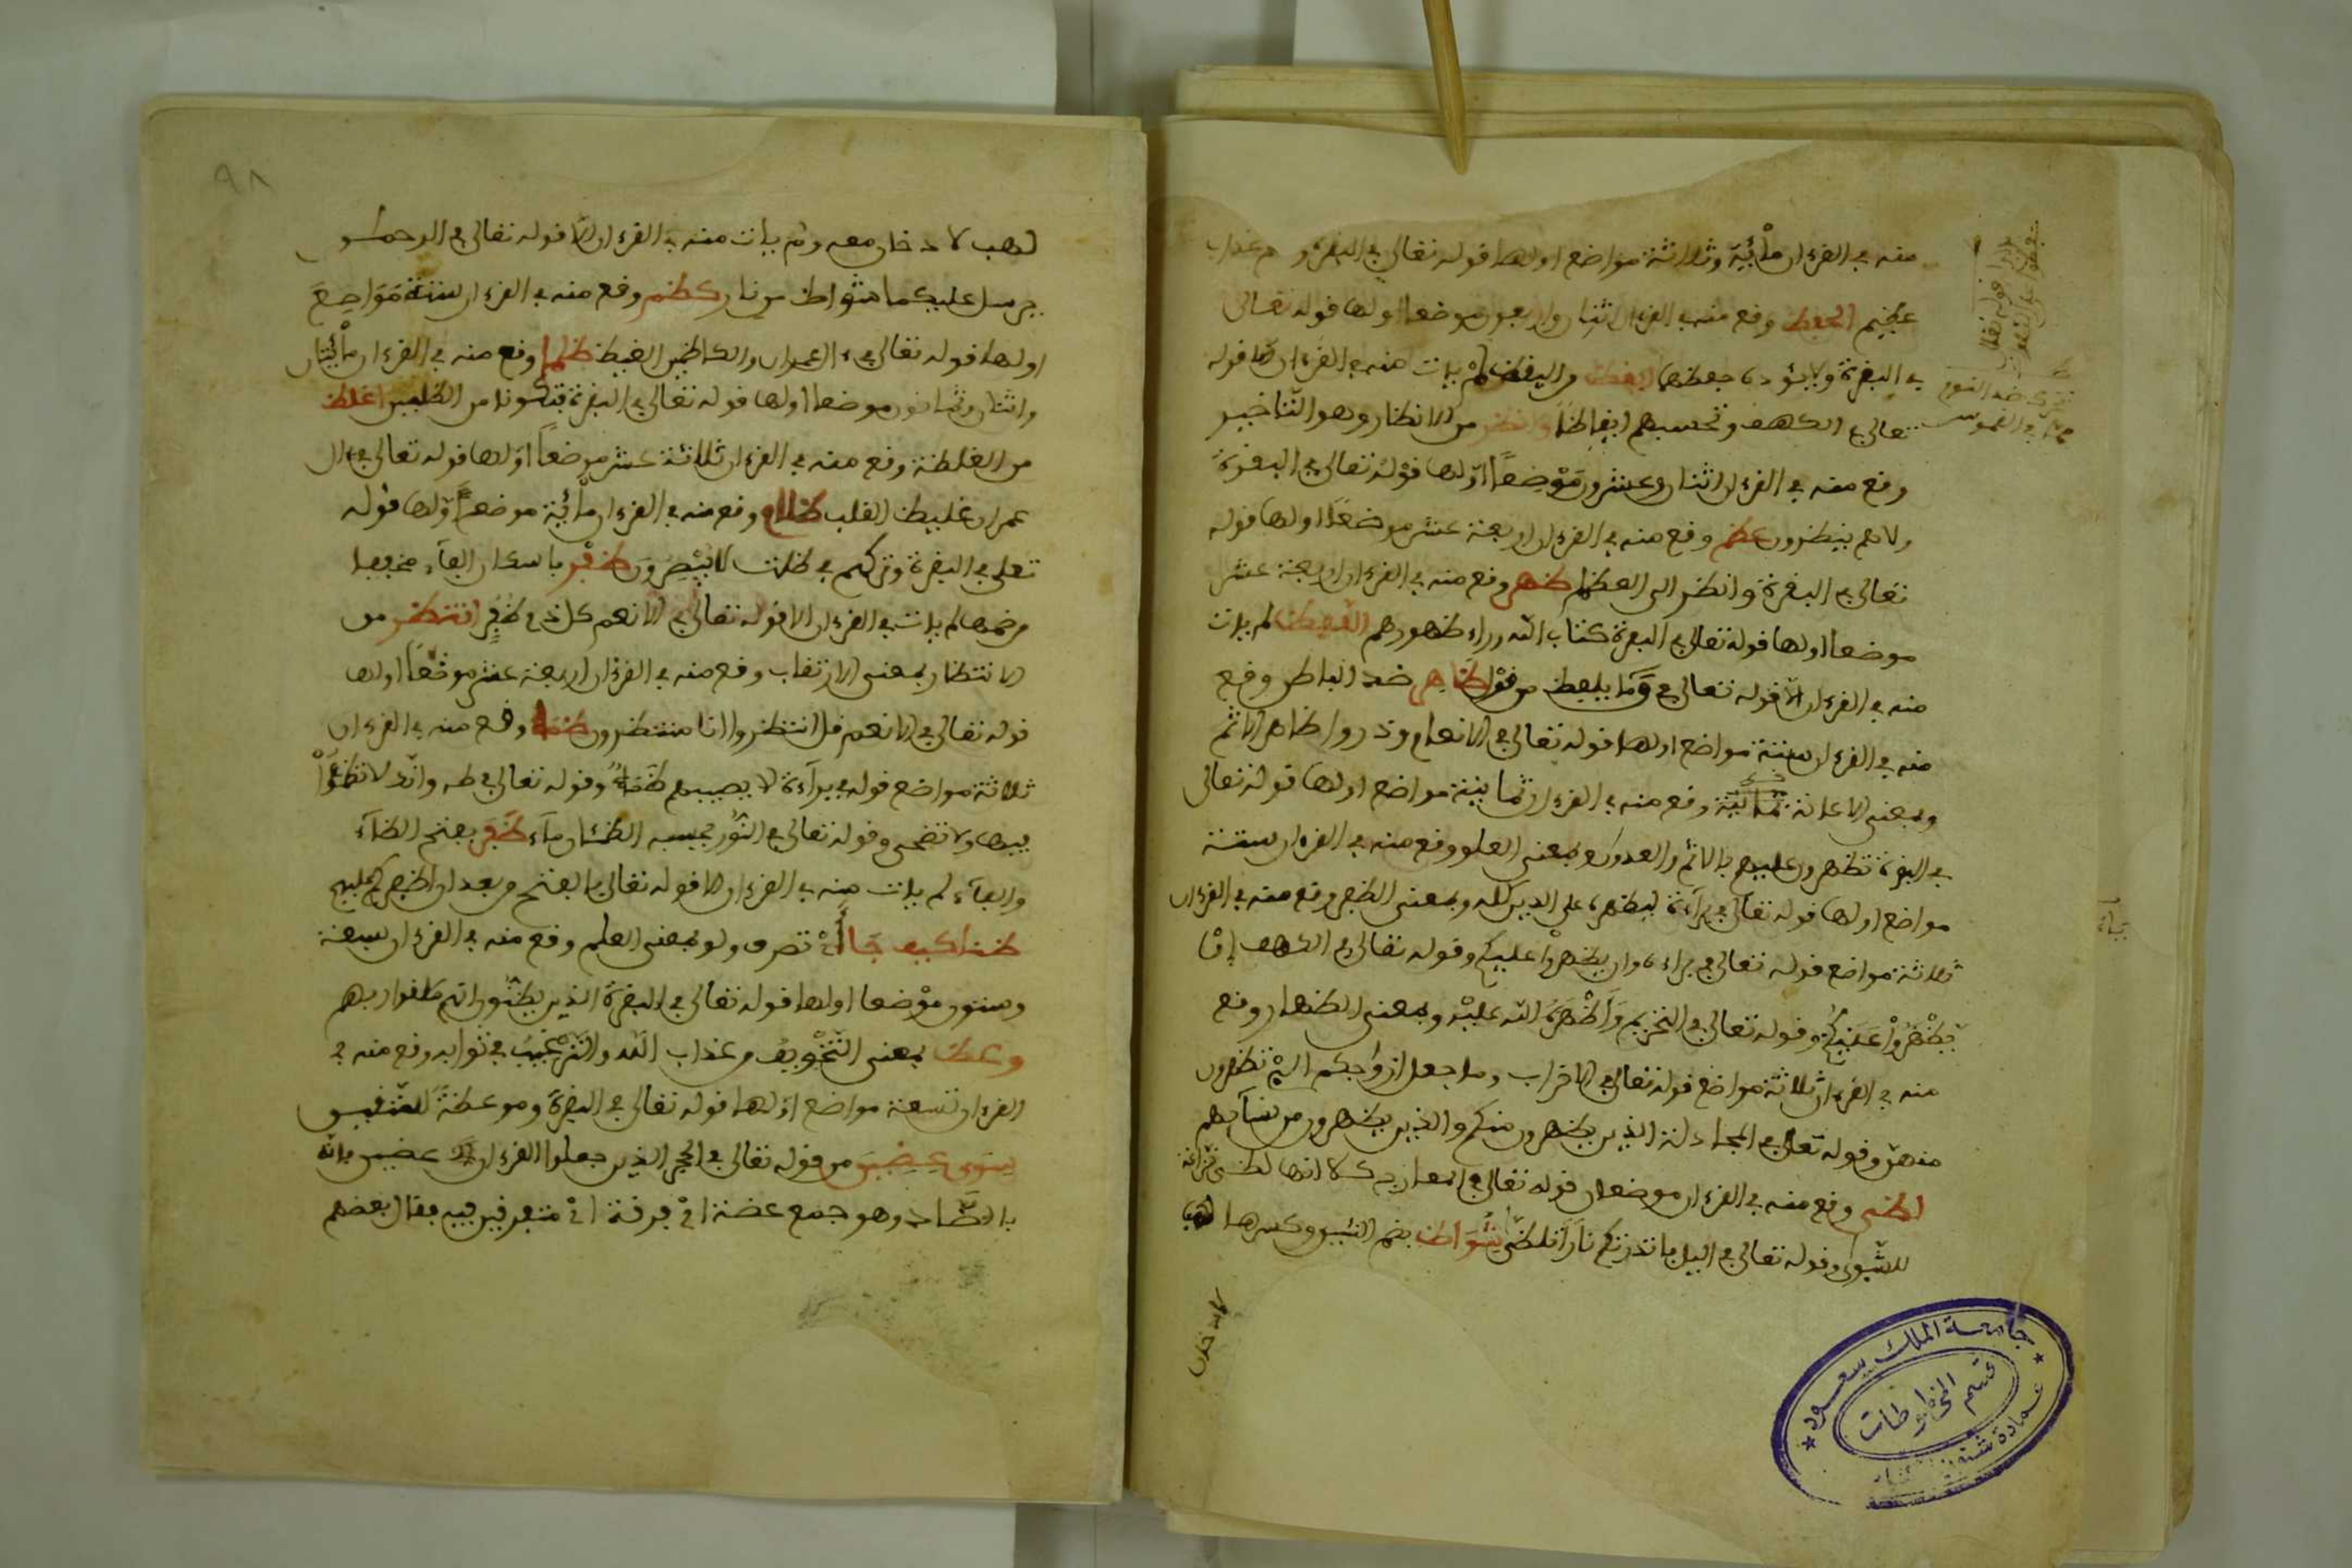 منه في القرءان مأئية وثلاثة مواضع اولها قوله تعالى في البقرة و م عذاب
عظيم الحفظ وقع منه في القرءان اثنان واربعون موضعا اولها قوله تعالى
في البقرة ولا يؤده حفظهما ايقظ من اليقظ لم يات منه في القرءان الا قوله
تعالى في الكهف وتحسبهم ايقاظا وانظر من الانظار وهو التاخير
وقع منه في القرءان اثنان وعشرون موضعا اولها قوله تعالى في البقرة
ولا هم ينظرون عظم وقع منه في القرءان اربعة عشر موضعا اولها قوله
تعالى في البقرة وانظر الى العظام ظهر وقع منه في القرءان اربعة عشر
موضعا اولها قوله تعالى في البقرة كتاب الله وراء ظهورهم اللفظ لم يات
منه في القرءان الا قوله تعالى في ق ما يلفظ من قول ظاهر ضد الباطن وقع
منه في القرءان ستة مواضع اولها قوله تعالى في الانعام وذروا ظاهر الاثم
وبمعنى الاعانة وقع منه في القرءان ثمانية مواضع اولها قوله تعالى
في البقرة تظهرون عليهم بالاثم والعدوان وبمعنى العلو وقع منه في القرءان ستة
مواضع اولها قوله تعالى في براءة ليظهره على الدين كله وبمعنى الظفر وقع منه في القرءان
ثلاثة مواضع قوله تعالى في براءة وان يظهروا عليكم وقوله تعالى في الكهف إن
يظهروا عليكم وقوله تعالى في التحريم وأظهره الله عليه وبمعنى الظهار وقع
منه في القرءان ثلاثة مواضع قوله تعالى في الاحزاب وما جعل ازواجكم الئ تظهرون
منهن وقوله تعالى في المجادلة الذين يظهرون منكم والذين يظهرون من نسائهم
لظى وقع منه في القرءان موضعان قوله تعالى في المعارج كلا انها لظى نزاعة
للشوى وقوله تعالى في اليل فانذرتكم نارا تلظى شواظ بضم الشين وكسرها لهب
جامعة الملك سعود
قسم المخطوطات
٩٨
لهب لا دخان معه ولم يات منه في القرءان الا قوله تعالى في الرحمن
يرسل عليكما شواظ من نار كظم وقع منه في القرءان ستة مواضع
اولها قوله تعالى في ءال عمران والكاظمين الغيظ ظلما وقع منه في القرءان مأئيتان
واثنان وثمانون موضعا اولها قوله تعالى في البقرة فتكونا من الظلمين اغلظ
من الغلظة وقع منه في القرءان ثلاثة عشر موضعا اولها قوله تعالى في ءال
عمران غليظ القلب ظلام وقع منه في القرءان مأئية موضع اولها قوله
تعلى في البقرة وتركهم في ظلمت لا يبصرون ظفر باسكان الفاء مخففا
من ضمها لم يات في القرءان الا قوله تعالى في الانعم كل ذي ظفر انتظر من
الانتظار بمعنى الارتقاب وقع منه في القرءان اربعة عشر موضعا اولها
قوله تعالى في الانعم قل انتظروا انا منتظرون ظمأ وقع منه في القرءان
ثلاثة مواضع قوله في براءة لا يصيبهم ظمأ وقوله تعالى في طه وانك لا تظمؤا
فيها ولا تضحى وقوله تعالى في النور يحسبه الظمئان ماء ظفر بفتح الظاء
والفاء لم يات منه في القرءان الا قوله تعالى في الفتح من بعد ان اظفركم عليهم
ظنا كيف جا أي تصرف ولو بمعنى العلم وقع منه في القرءان سبعة
وستون موضعا اولها قوله تعالى في البقرة الذين يظنون انهم ملقوا ربهم
وعظ بمعنى التخويف من عذاب الله والترغيب في ثوابه وقع منه في
القرءان تسعة مواضع اولها قوله تعالى في البقرة وموعظة للمتقين
سوى عضين من قوله تعالى في الحجر الذين جعلوا القرءان عضين فانه
بالضاد وهو جمع عضة اي فرقة اي متفرقين فيه فقال بعضهم